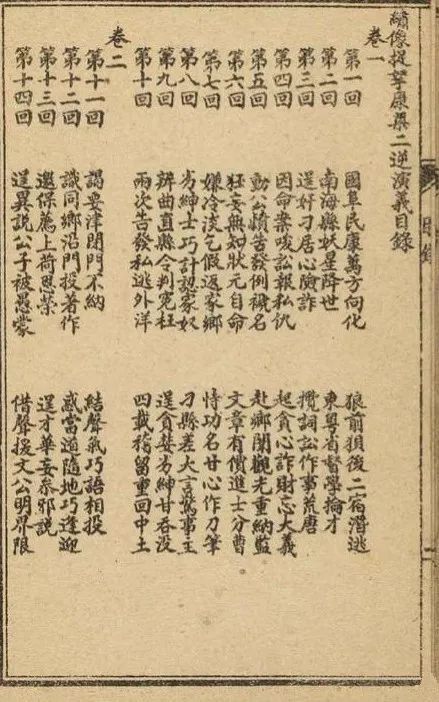 繡像捉拏康梁二逆演義目錄
卷一
第一回 國阜民康萬方向化 狼前狽後二宿潛逃
第二回 南海縣妖星降世 東粵省督學掄才
第三回 逞好刁居心險詐 攬詞訟作事荒唐
第四回 因命案唆訟報私仇 起貪心詐財忘大義
第五回 動公憤告發例褫名 赴鄉闈觀光重納監
第六回 狂妄無知狀元自命 文章有價進士分曹
第七回 嫌冷淡乞假返家鄉 恃功名甘心作刀筆
第八回 劣紳士巧計認家奴 刁縣差大言駡事主
第九回 辨曲直縣令判冤枉 逞貪婪劣紳甘吞沒
第十回 兩次告發私逃外洋 四載稽留重回中土
卷二
第十一回 謁要津閉門不納 結聲氣巧語相投
第十二回 識同鄉沿門投著作 惑當道隨地巧逢迎
第十三回 邀保薦上荷恩榮 逞才華妄參邪說
第十四回 逞異說公子被愚蒙 借聲援文公明界限
目錄